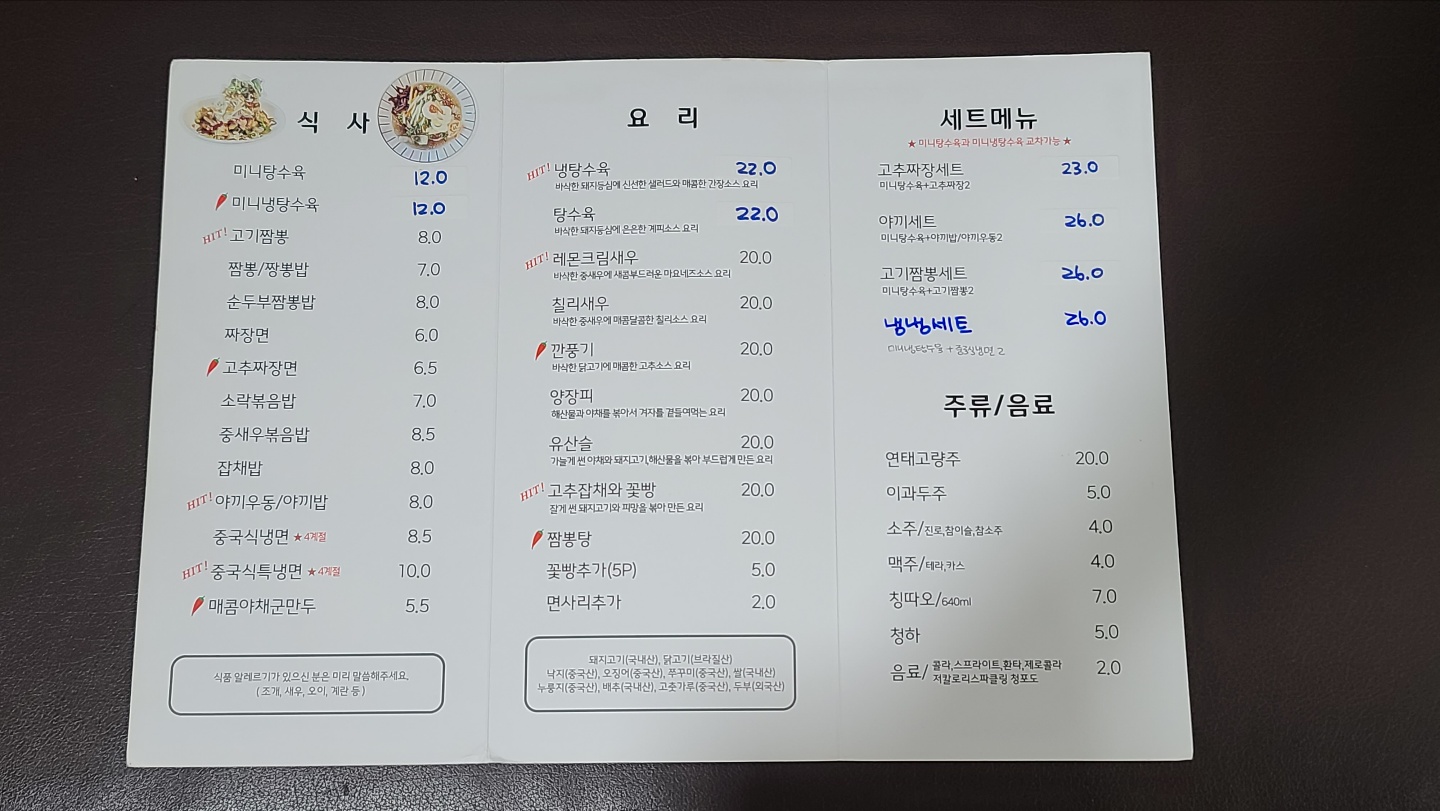 식 사
미니탕수육 12.0
미니냉탕수육 12.0
HIT! 고기짬뽕 8.0
짬뽕/짱뽕밥 7.0
순두부짬뽕밥 8.0
짜장면 6.0
고추짜장면 6.5
소락볶음밥 7.0
중새우볶음밥 8.5
잡채밥 8.0
HIT! 야끼우동/야끼밥 8.0
중국식냉면 ★4계절 8.5
HIT! 중국식특냉면 ★4계절 10.0
매콤야채군만두 5.5
식품 알레르기가 있으신 분은 미리 말씀해주세요.
( 조개, 새우, 오이, 계란 등 )
요 리
HIT! 냉탕수육 22.0
바삭한 돼지등심에 신선한 샐러드와 매콤한 간장소스 요리
탕수육 22.0
바삭한 돼지등심에 은은한 계피소스 요리
HIT! 레몬크림새우 20.0
바삭한 중새우에 새콤부드러운 마요네즈소스 요리
칠리새우 20.0
바삭한 중새우에 매콤달콤한 칠리소스 요리
깐풍기 20.0
바삭한 닭고기에 매콤한 고추소스 요리
양장피 20.0
해산물과 야채를 볶아서 겨자를 곁들여먹는 요리
유산슬 20.0
가늘게 썬 야채와 돼지고기,해산물을 볶아 부드럽게 만든 요리
HIT! 고추잡채와 꽃빵 20.0
잘게 썬 돼지고기와 피망을 볶아 만든 요리
짬뽕탕 20.0
꽃빵추가(5P) 5.0
면사리추가 2.0
돼지고기(국내산), 닭고기(브라질산)
낙지(중국산), 오징어(중국산), 쭈꾸미(중국산), 쌀(국내산)
누룽지(중국산), 배추(국내산), 고춧가루(중국산), 두부(외국산)
세트메뉴
★ 미니탕수육과 미니냉탕수육 교차가능 ★
고추짜장세트 23.0
미니탕수육+고추짜장2
야끼세트 26.0
미니탕수육+야끼밥/야끼우동2
고기짬뽕세트 26.0
미니탕수육+고기짬뽕2
냉냉세트 26.0
미니냉탕수육 + 중국식냉면 2
주류/음료
연태고량주 20.0
이과두주 5.0
소주/진로,참이슬,참소주 4.0
맥주/테라,카스 4.0
칭따오/640ml 7.0
청하 5.0
음료/ 콜라,스프라이트,환타,제로콜라 2.0
저칼로리스파클링 청포도